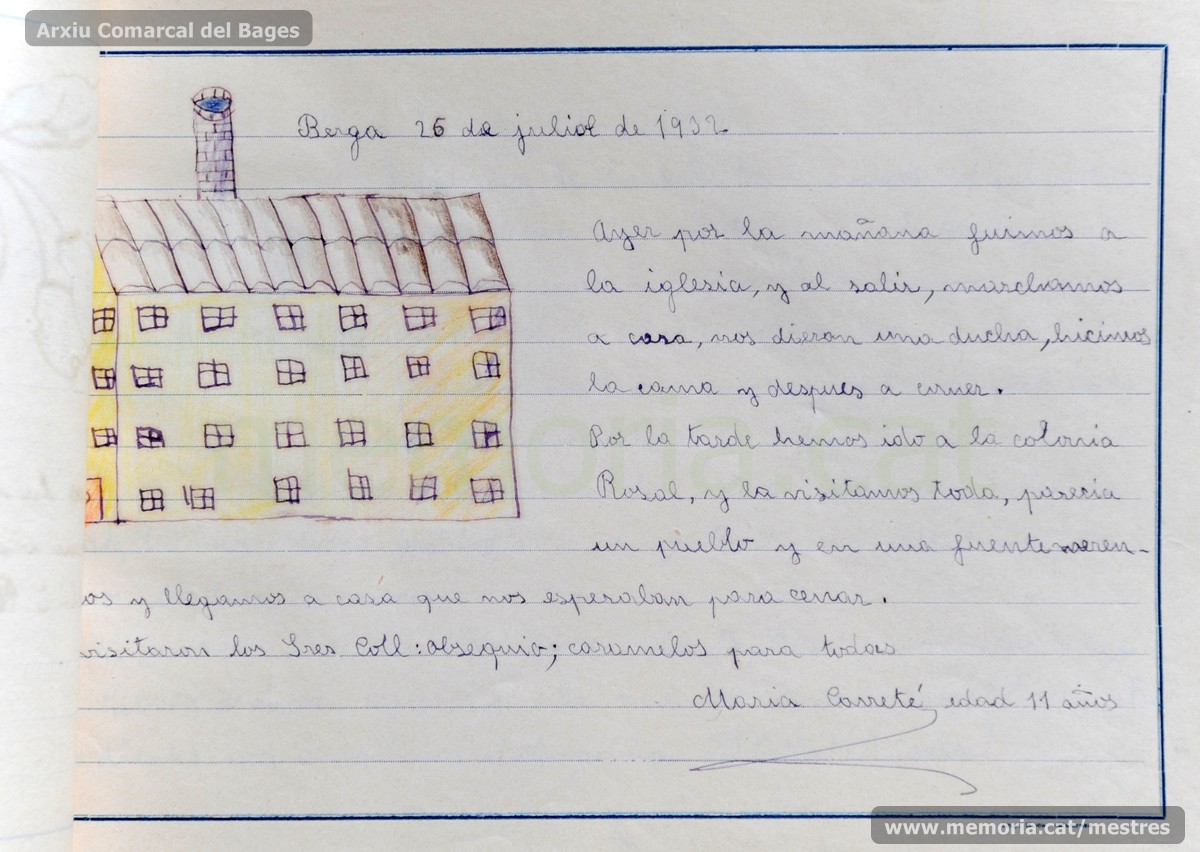 Arxiu Comarcal del Bages
Berga 26 de juliol de 1932
Ayer por la mañana fuimos a
la iglesia, y al salir, marchamos
a casa, nos dieron una ducha, hicimos
la cama y despues a comer.
Por la tarde hemos ido a la colonia
Rosal, y la visitamos toda, parecia
un pueblo y en una fuente meren-
os y llegamos a casa que nos esperaban para cenar.
visitaron los Sres Coll: obsequio; caramelos para todos
Maria Carreté edad 11 años
memoria.cat
www.memoria.cat/mestres